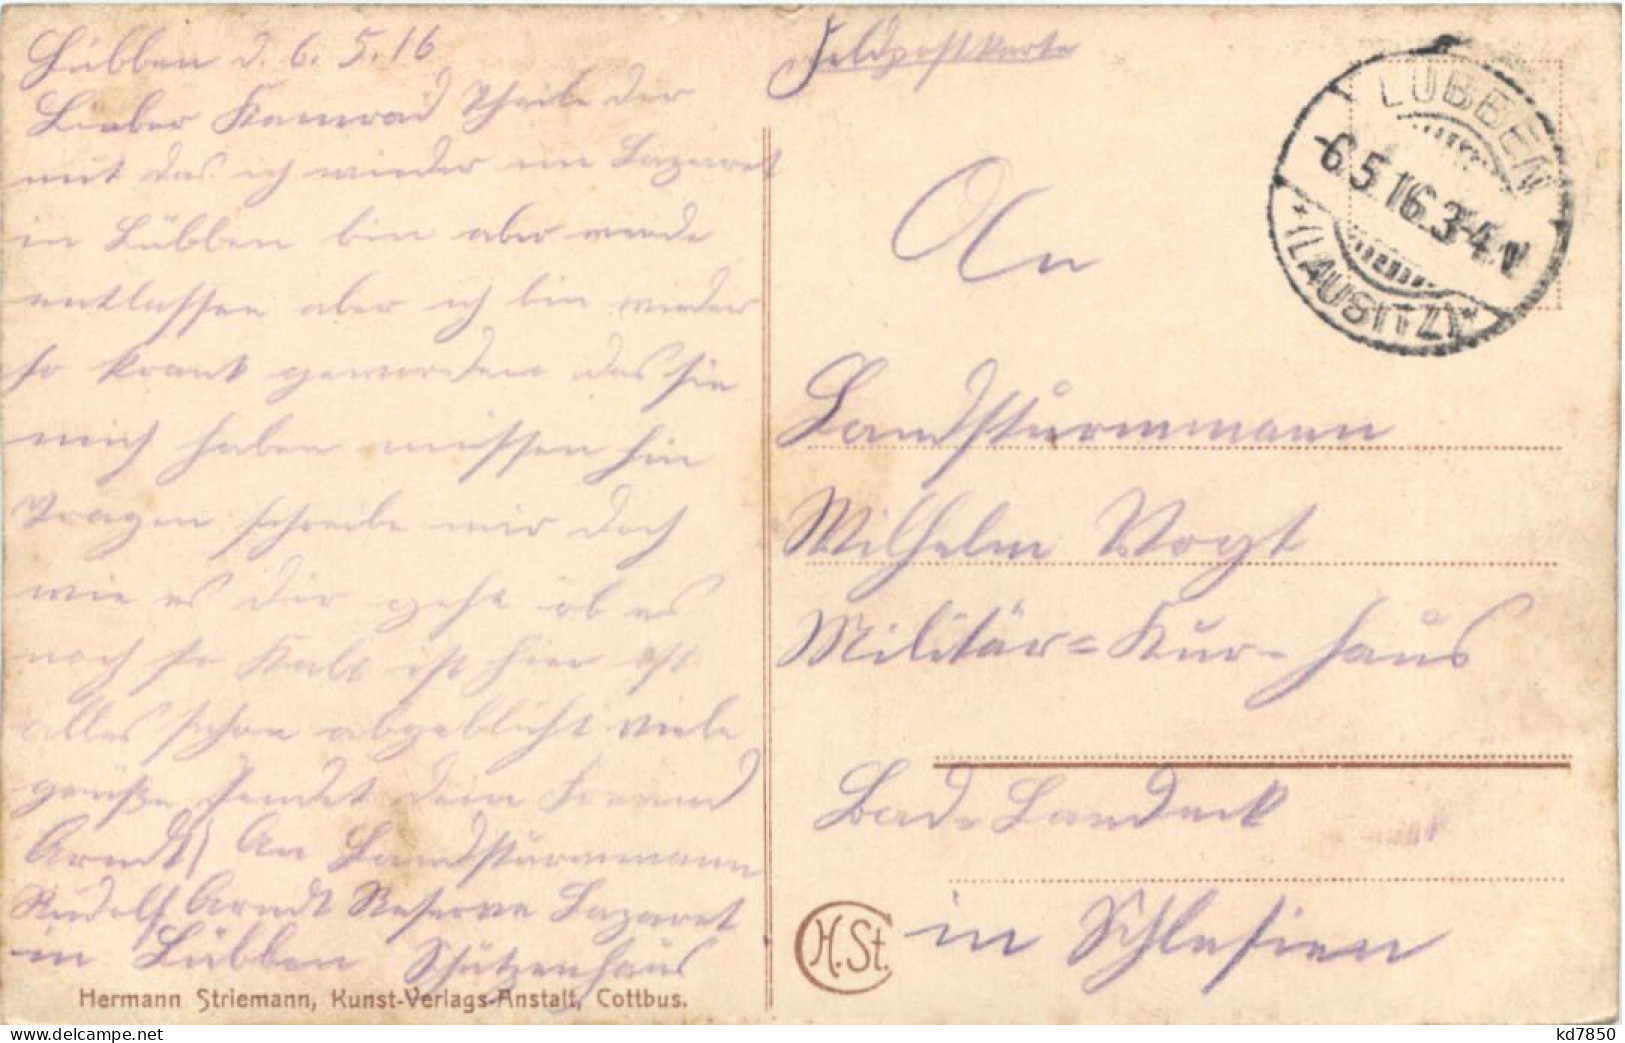 Lübben d. 6.5.16
Lieber Kamrad Theile dir
mit das ich wieder im Lazaret
in Lübben bin aber werde
entlassen aber ich bin wieder
so krank geworden das sie
mich haben müssen hin
Tragen schreibe mir doch
wie es dir geht ob es
noch so Kalt ist hier ist
alles schon abgeblüht viele
grüße sendet dein Freund
Arndt) An Landsturmmann
Rudolf Arndt Reserve Lazaret
in Lübben Schützenhaus
Hermann Striemann, Kunst-Verlags-Anstalt, Cottbus.
Feldpostkarte
LÜBBEN
6.5.16.3-4.N
*(LAUSITZ)*
An
Landsturmmann
Wilhelm Vogt
Militär=Kur-haus
Bad-Landeck
in Schlesien
H.St.
delcampe.net
kd7850